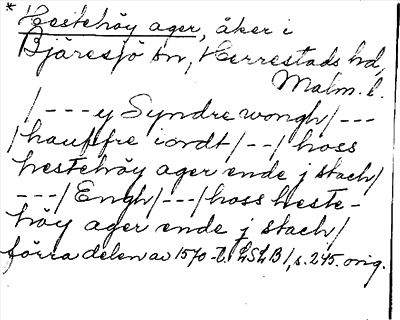 * Hestehöy ager, åker i
Bjäresjö sn, Herrestads hd,
Malm. l.
/---y Syndre wongh/---
/hauffre iordt/--/hoss
hestehöy ager ende j stach/
---/Engh/---/hoss heste-
höy ager ende j stach/
förra delen av 1570-t. LSLB1, s. 245. orig.